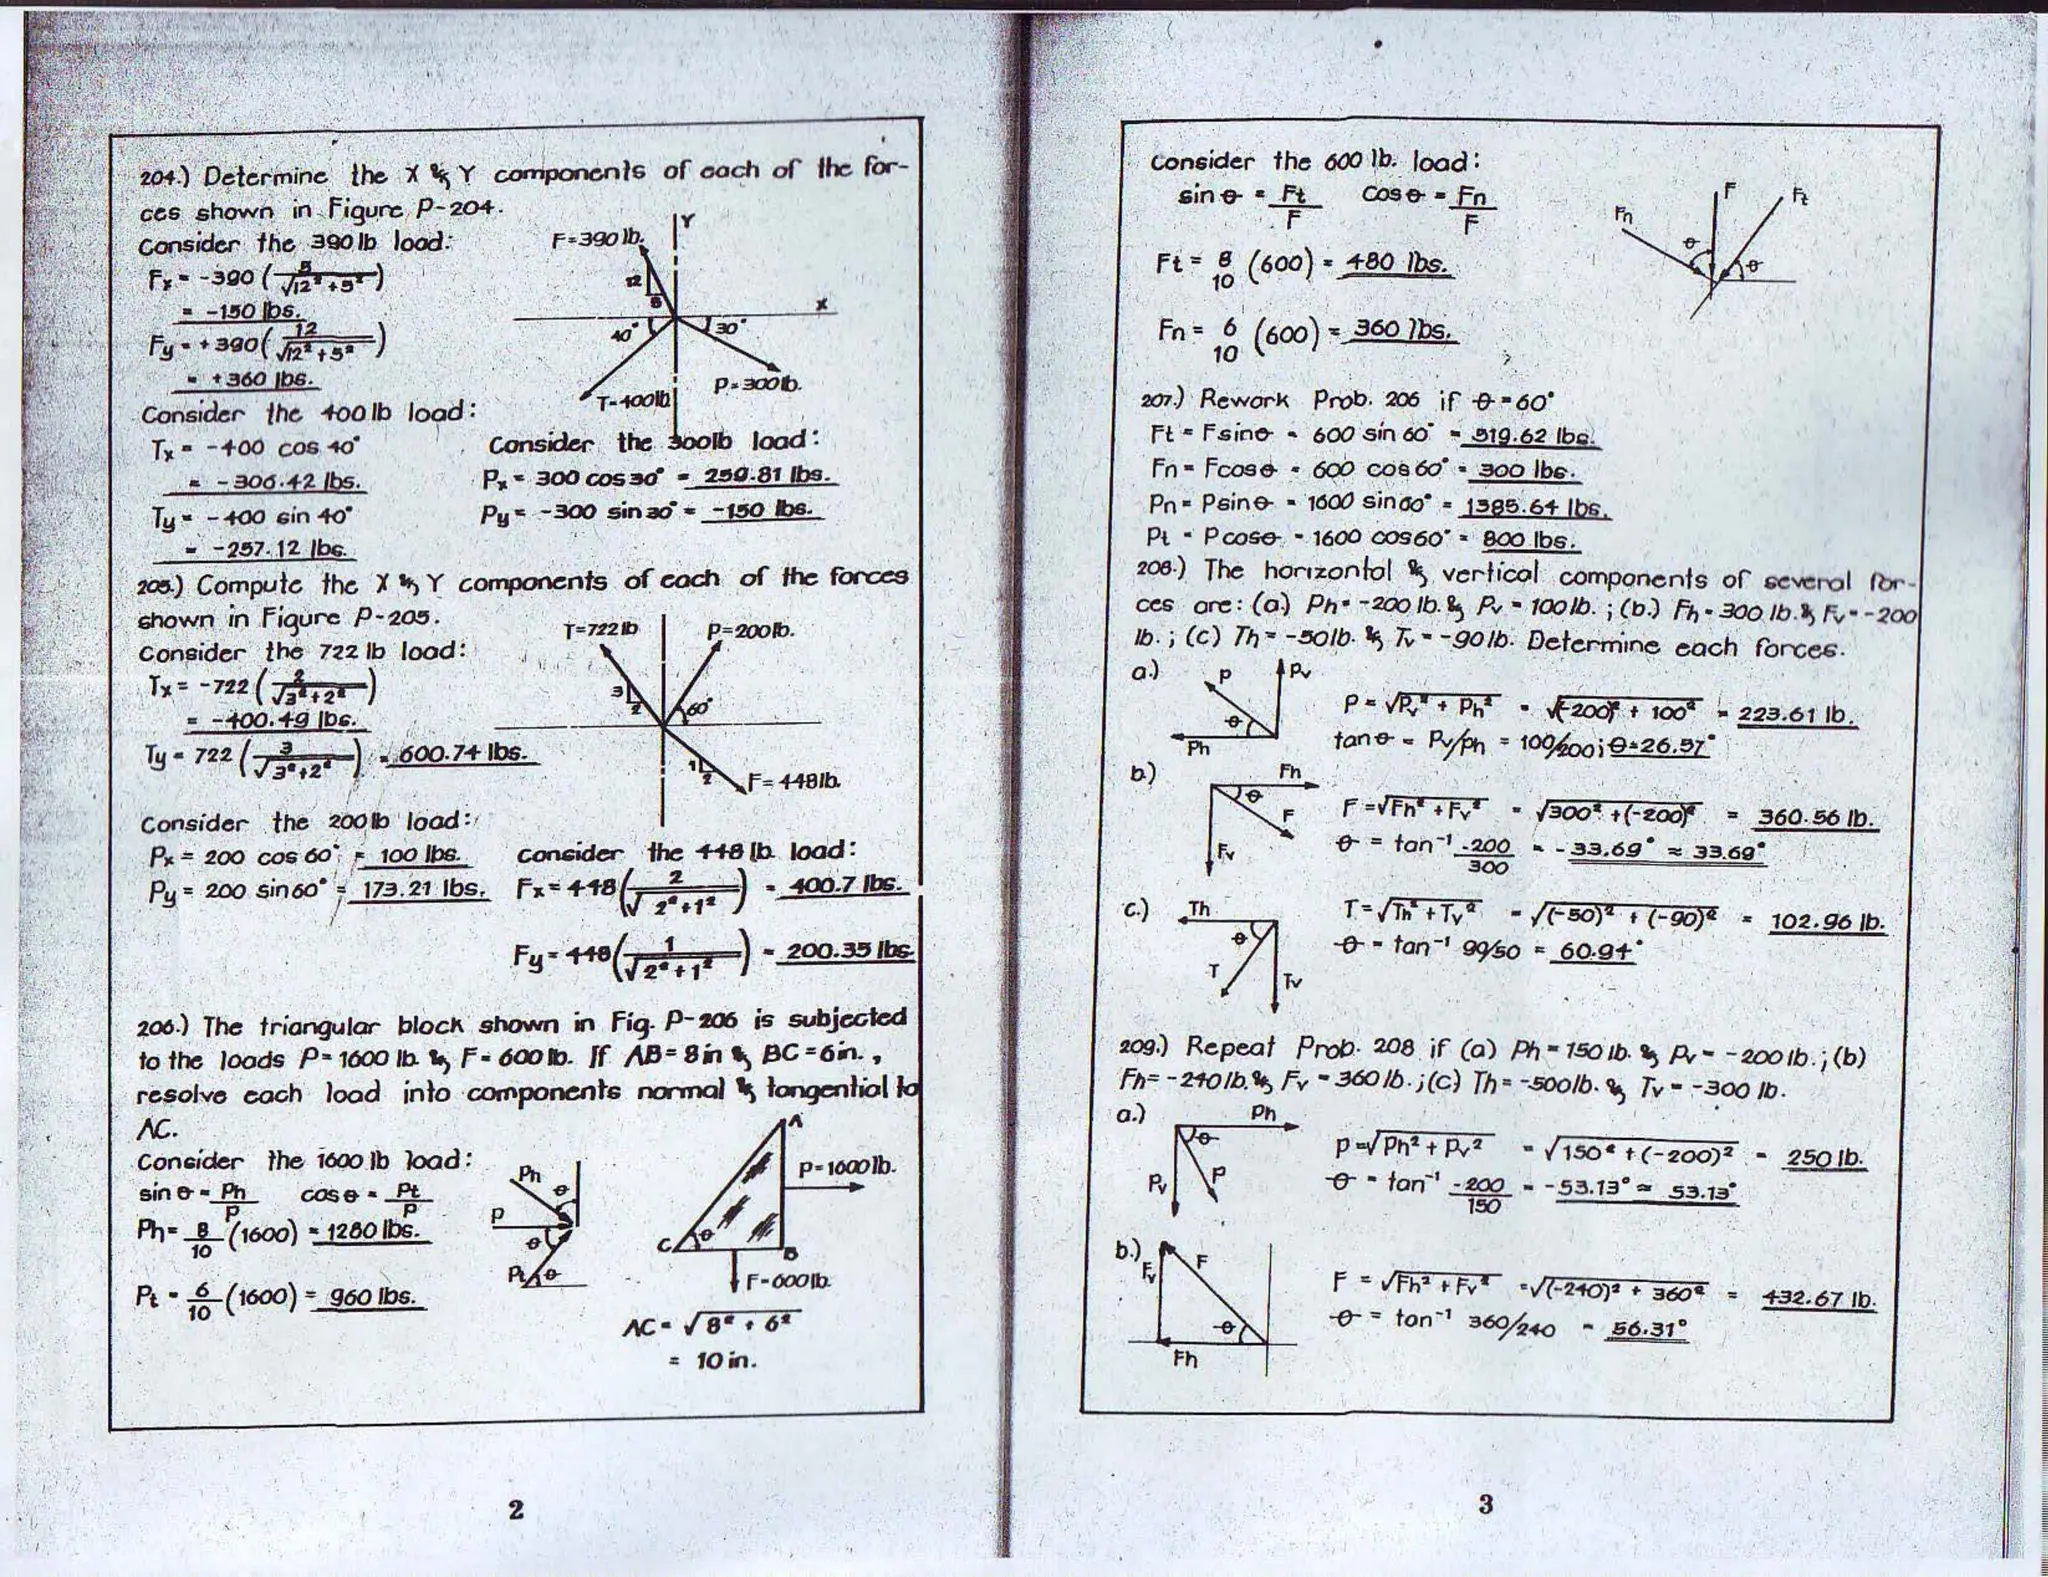 204.) Determine the X & Y components of each of the for-
ces shown in Figure P-204.
Consider the 390 lb load:
Fx = -390 ( 5 / √12² + 5² )
= -150 lbs.
Fy = +390 ( 12 / √12² + 5² )
= +360 lbs.
F=390 lb.
Y
12
5
X
40°
30°
T=400lb
P=300lb.
Consider the 400 lb load:
Tx = -400 cos 40°
= -306.42 lbs.
Ty = -400 sin 40°
= -257.12 lbs.
Consider the 300lb load:
Px = 300 cos 30° = 259.81 lbs.
Py = -300 sin 30° = -150 lbs.
205.) Compute the X & Y components of each of the forces
shown in Figure P-205.
Consider the 722 lb load:
Tx = -722 ( 2 / √3² + 2² )
= -400.49 lbs.
Ty = 722 ( 3 / √3² + 2² ) = 600.74 lbs.
T=722 lb
P=200lb.
3
2
60°
1
2
F=448lb.
Consider the 200 lb load:
Px = 200 cos 60° = 100 lbs.
Py = 200 sin 60° = 173.21 lbs.
Consider the 448 lb. load:
Fx = 448 ( 2 / √2² + 1² ) = 400.7 lbs.
Fy = 448 ( 1 / √2² + 1² ) = 200.35 lbs
206.) The triangular block shown in Fig. P-206 is subjected
to the loads P=1600 lb. & F=600 lb. If AB=8 in & BC=6in.,
resolve each load into components normal & tangential to
AC.
Consider the 1600 lb load:
sin θ = Ph / P cos θ = Pt / P
Ph = 8/10 (1600) = 1280 lbs.
Pt = 6/10 (1600) = 960 lbs.
Ph
θ
P
θ
Pt
θ
A
P=1600lb.
C
θ
B
F=600lb.
AC = √8² + 6²
= 10 in.
2
Consider the 600 lb. load:
sin θ = Ft / F cos θ = Fn / F
Ft = 8/10 (600) = 480 lbs.
Fn = 6/10 (600) = 360 lbs.
Fn
F
Ft
θ
θ
207.) Rework Prob. 206 if θ = 60°
Ft = F sin θ = 600 sin 60° = 519.62 lbs.
Fn = F cos θ = 600 cos 60° = 300 lbs.
Pn = P sin θ = 1600 sin 60° = 1385.64 lbs.
Pt = P cos θ = 1600 cos 60° = 800 lbs.
208.) The horizontal & vertical components of several for-
ces are: (a.) Ph = -200 lb. & Pv = 100 lb. ; (b.) Fh = 300 lb. & Fv = -200
lb. ; (c) Th = -50lb. & Tv = -90lb. Determine each forces.
a.)
P
Pv
θ
Ph
P = √Pv² + Ph² = √(-200)² + 100² = 223.61 lb.
tan θ = Pv/Ph = 100/200 ; θ = 26.57°
b.)
Fh
θ
F
Fv
F = √Fh² + Fv² = √300² + (-200)² = 360.56 lb.
θ = tan⁻¹ -200/300 = -33.69° ≈ 33.69°
c.)
Th
θ
T
Tv
T = √Th² + Tv² = √(-50)² + (-90)² = 102.96 lb.
θ = tan⁻¹ 90/50 = 60.94°
209.) Repeat Prob. 208 if (a) Ph = 150 lb. & Pv = -200 lb. ; (b)
Fh = -240 lb. & Fv = 360 lb. ; (c) Th = -500lb. & Tv = -300 lb.
a.)
Ph
θ
Pv
P
P = √Ph² + Pv² = √150² + (-200)² = 250 lb.
θ = tan⁻¹ -200/150 = -53.13° ≈ 53.13°
b.)
Fv
F
θ
Fh
F = √Fh² + Fv² = √(-240)² + 360² = 432.67 lb.
θ = tan⁻¹ 360/240 = 56.31°
3